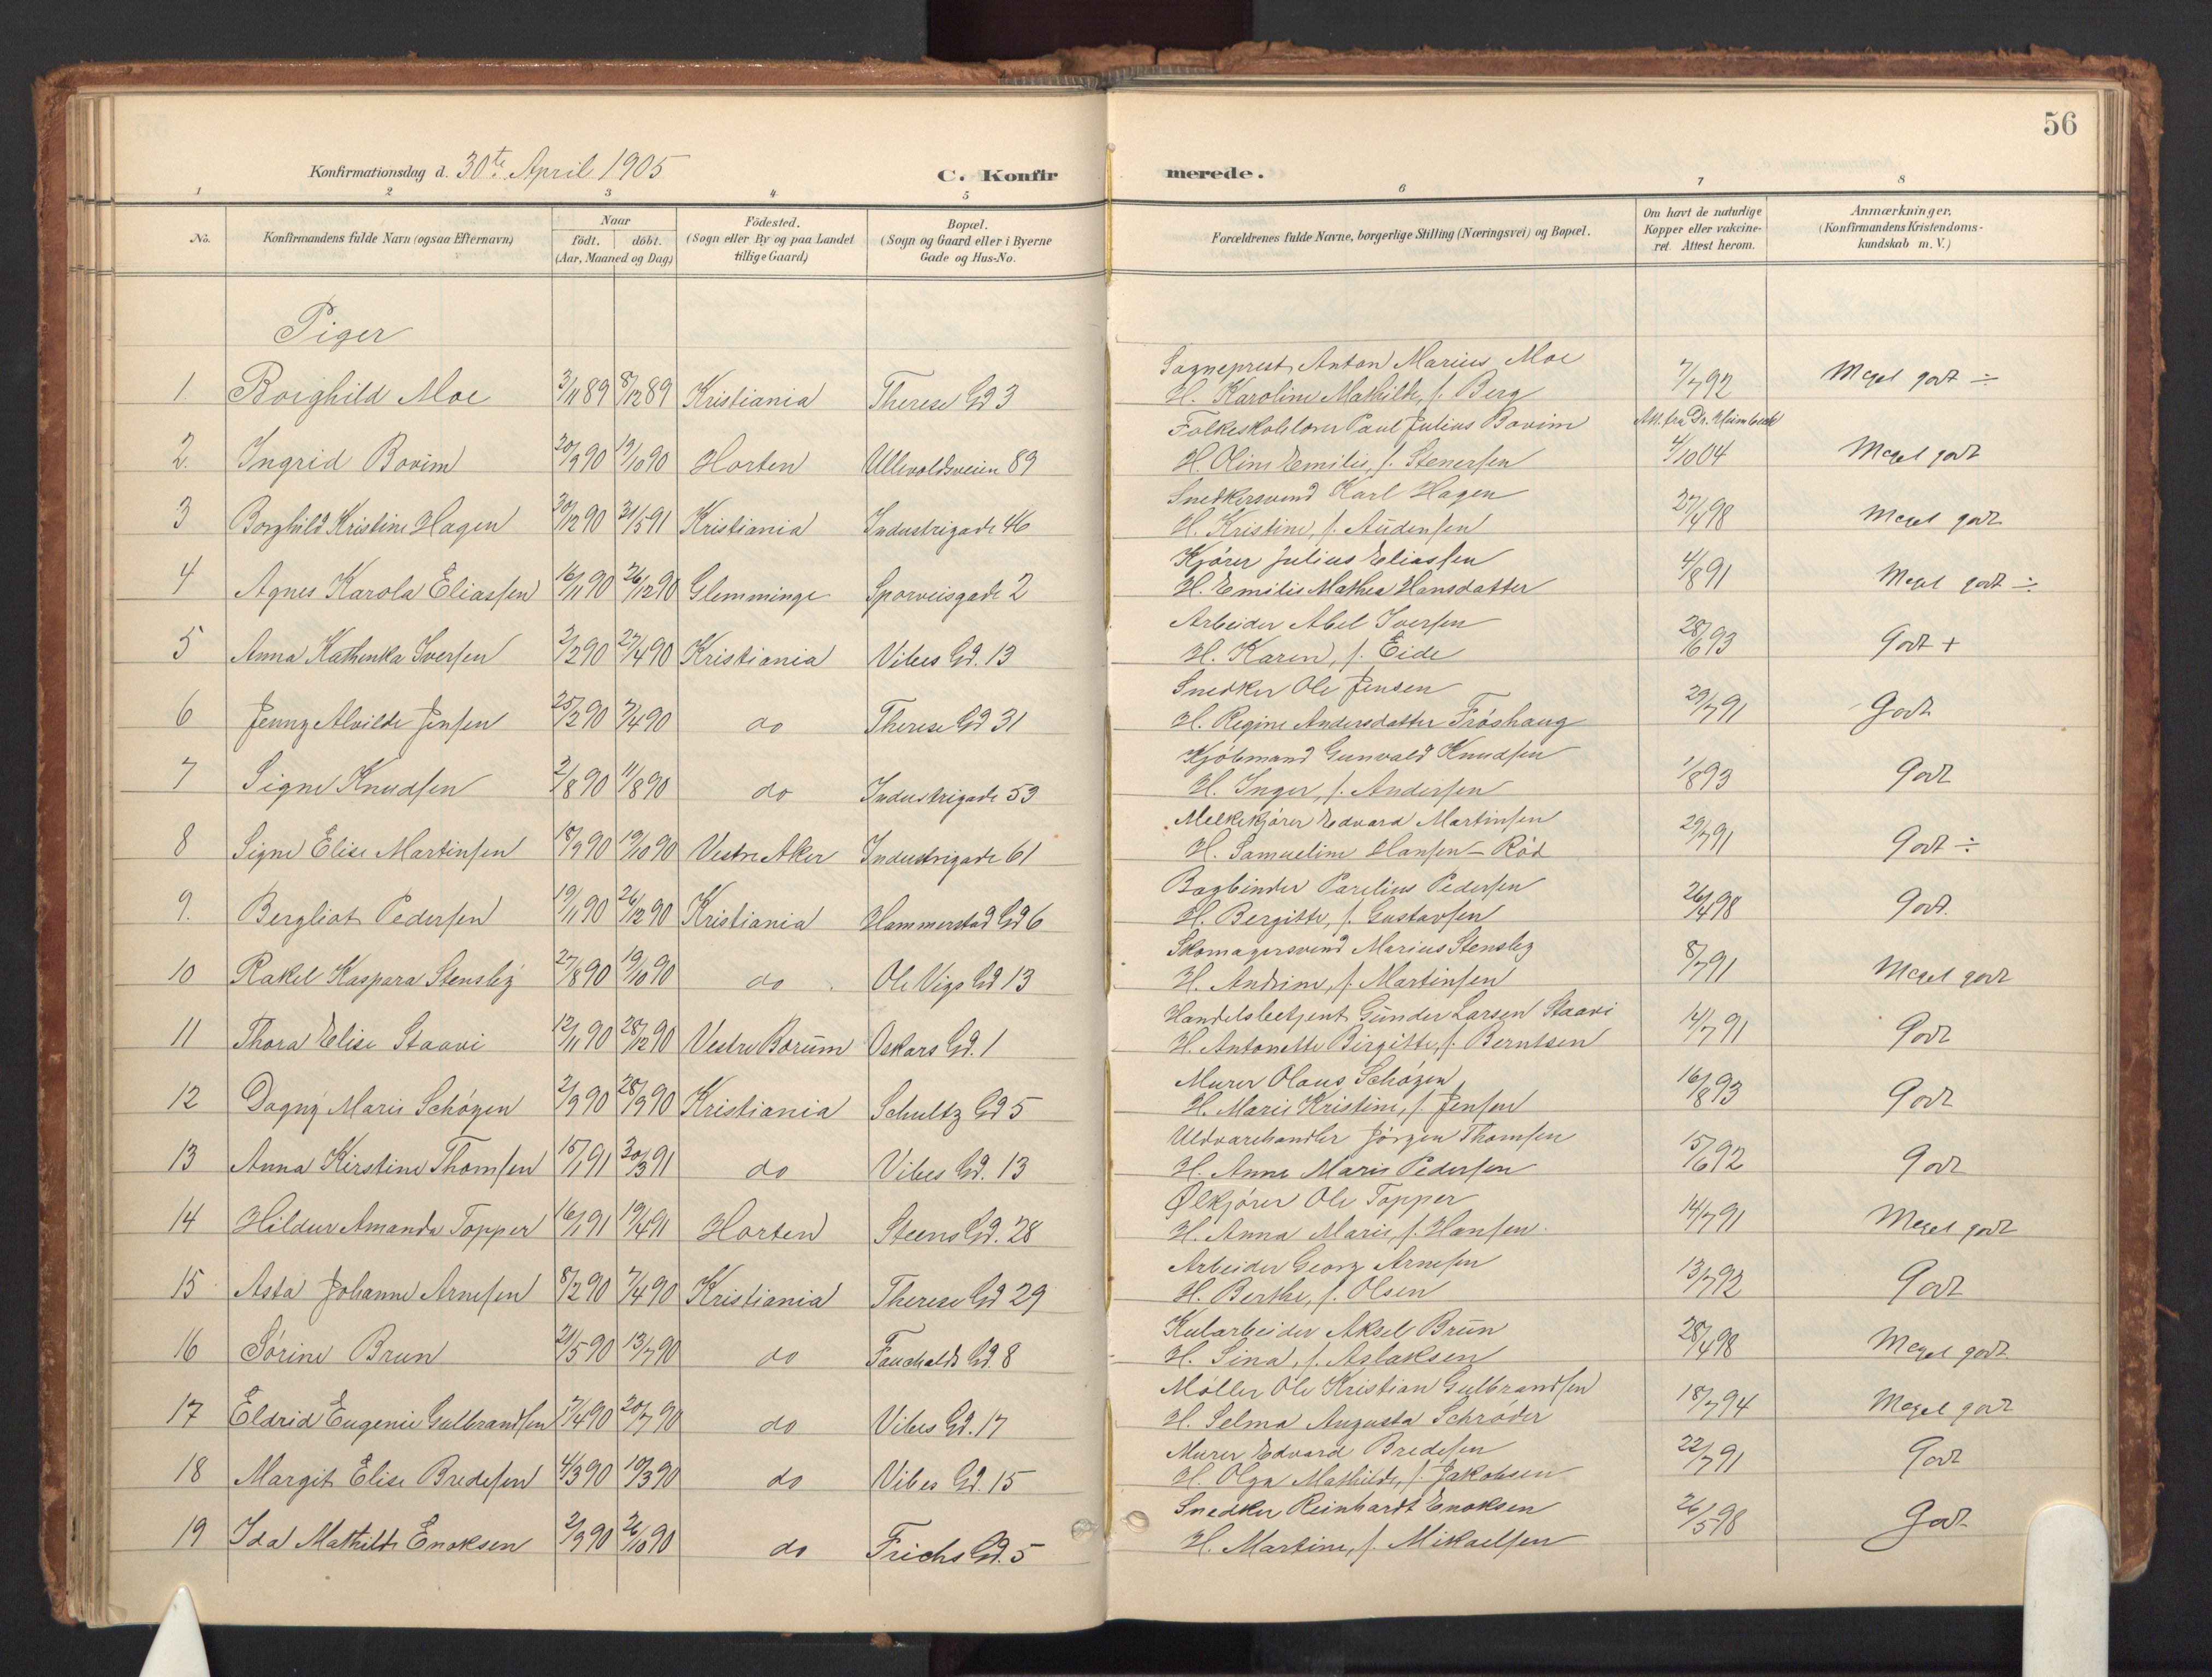 56
Konfirmationsdag d. 30te April 1905
C. Konfirmerede.
1 2 3 4 5 6 7 8
No.
Konfirmandens fulde Navn (ogsaa Efternavn)
Naar
födt. döbt.
(Aar, Maaned og Dag)
Födested.
(Sogn eller By og paa Landet
tillige Gaard)
Bopæl.
(Sogn og Gaard eller i Byerne
Gade og Hus-No.
Forældrenes fulde Navne, borgerlige Stilling (Næringsvei) og Bopæl.
Om havt de naturlige
Kopper eller vakcine-
ret. Attest herom.
Anmærkninger,
(Konfirmandens Kristendoms-
kundskab m. V.)
Piger
Sogneprest Anton Marius Moe
1. Borghild Moe 3/11 89 8/12 89 Kristiania Therese Gd 3 H. Karoline Mathilde, f. Berg 7/7 92 Meget godt ÷
Folkeskolelærer Paul Julius Bovim Att. fra Dr.
2. Ingrid Bovim 20/9 90 19/10 90 Horten Ullevoldsveien 89 H. Oline Emilie, f. Stenersen 4/10 04 Meget godt
Snedkersvend Karl Hagen
3 Borghild Kristine Hagen 20/12 90 31/5 91 Kristiania Industrigade 46 H. Kristine, f. Audensen 27/4 98 Meget godt
Kjører Julius Eliassen
4 Agnes Karola Eliassen 16/11 90 26/12 90 Glemminge Sporveisgade 2 H. Emilie Mathea Hansdatter 4/8 91 Meget godt ÷
Arbeider Abel Iversen
5 Anna Kathenka Iversen 2/2 90 27/4 90 Kristiania Vibes Gd. 13 H. Karen, f. Eide 28/6 93 Godt +
Snedker Ole Jensen
6 Jenny Alvilde Jensen 25/2 90 7/4 90 do Therese Gd 31 H. Regine Andersdatter Fröshaug 29/7 91 Godt
Kjöbmand Gunvald Knudsen
7 Signe Knudsen 2/8 90 11/8 90 do Industrigade 53 H. Inger, f. Andersen 1/8 93 Godt
Melkekjører Edvard Martinsen
8 Signe Elise Martinsen 18/9 90 19/10 90 Vestre Aker Industrigade 61 H. Samueline Hansen-Röd 29/7 91 Godt ÷
Bogbinder Parelius Pedersen
9. Bergliot Pedersen 19/11 90 26/12 90 Kristiania Hammerstad Gd 6 H. Bergitte, f. Gustavsen 26/4 98 Godt.
Skomagersvend Marius Stensby
10 Rakel Kaspara Stensby 27/8 90 19/10 90 do Ole Vigs Gd 13 H. Andrine, f. Martinsen 8/7 91 Meget godt
Handelsbetjent Gunder Larsen Staavi
11 Thora Elise Staavi 12/11 90 28/12 90 Vestre Borum Oskars Gd. 1 H. Antonette Birgitte, f. Berntsen 14/7 91 Godt
Murer Olaus Schøyen
12 Dagny Marie Schøyen 2/9 90 28/9 90 Kristiania Schultz Gd 5 H. Marie Kristine, f. Jensen 16/8 93 Godt
Uldvarehandler Jörgen Thomsen
13 Anna Kirstine Thomsen 15/1 91 30/3 91 do Vibes Gd. 13 H. Anne Marie Pedersen 15/6 92 Godt
Ølkjører Ole Topper
14 Hildur Amanda Topper 16/1 91 19/4 91 Horten Steens Gd. 28 H. Anna Marie, f. Hansen. 14/7 91 Meget godt
Arbeider Georg Arnesen
15 Asta Johanne Arnesen 8/2 90 7/4 90 Kristiania Therese Gd 29 H. Berthe, f. Olsen 13/7 92 Godt
Kularbeider Aksel Brun
16 Sörine Brun 21/5 90 13/7 90 do Fauchalds Gd. 8 H. Sina, f. Aslaksen 28/4 98 Meget godt.
Möller Ole Kristian Gulbrandsen
17 Eldrid Eugenie Gulbrandsen 17/4 90 20/7 90 do Vibes Gd. 17 H. Selma Augusta Schröder 18/7 94 Meget godt
Murer Edvard Bredesen
18 Margit Elise Bredesen 4/3 90 19/3 90 do Vibes Gd. 15 H. Olga Mathilde, f. Jakobsen 22/7 91 Godt
Snedker Reinhardt Enoksen
19 Ida Mathilde Enoksen 2/9 90 26/10 90 do Frichs Gd. 5 H. Martine, f. Mikaelsen 26/5 98 Godt